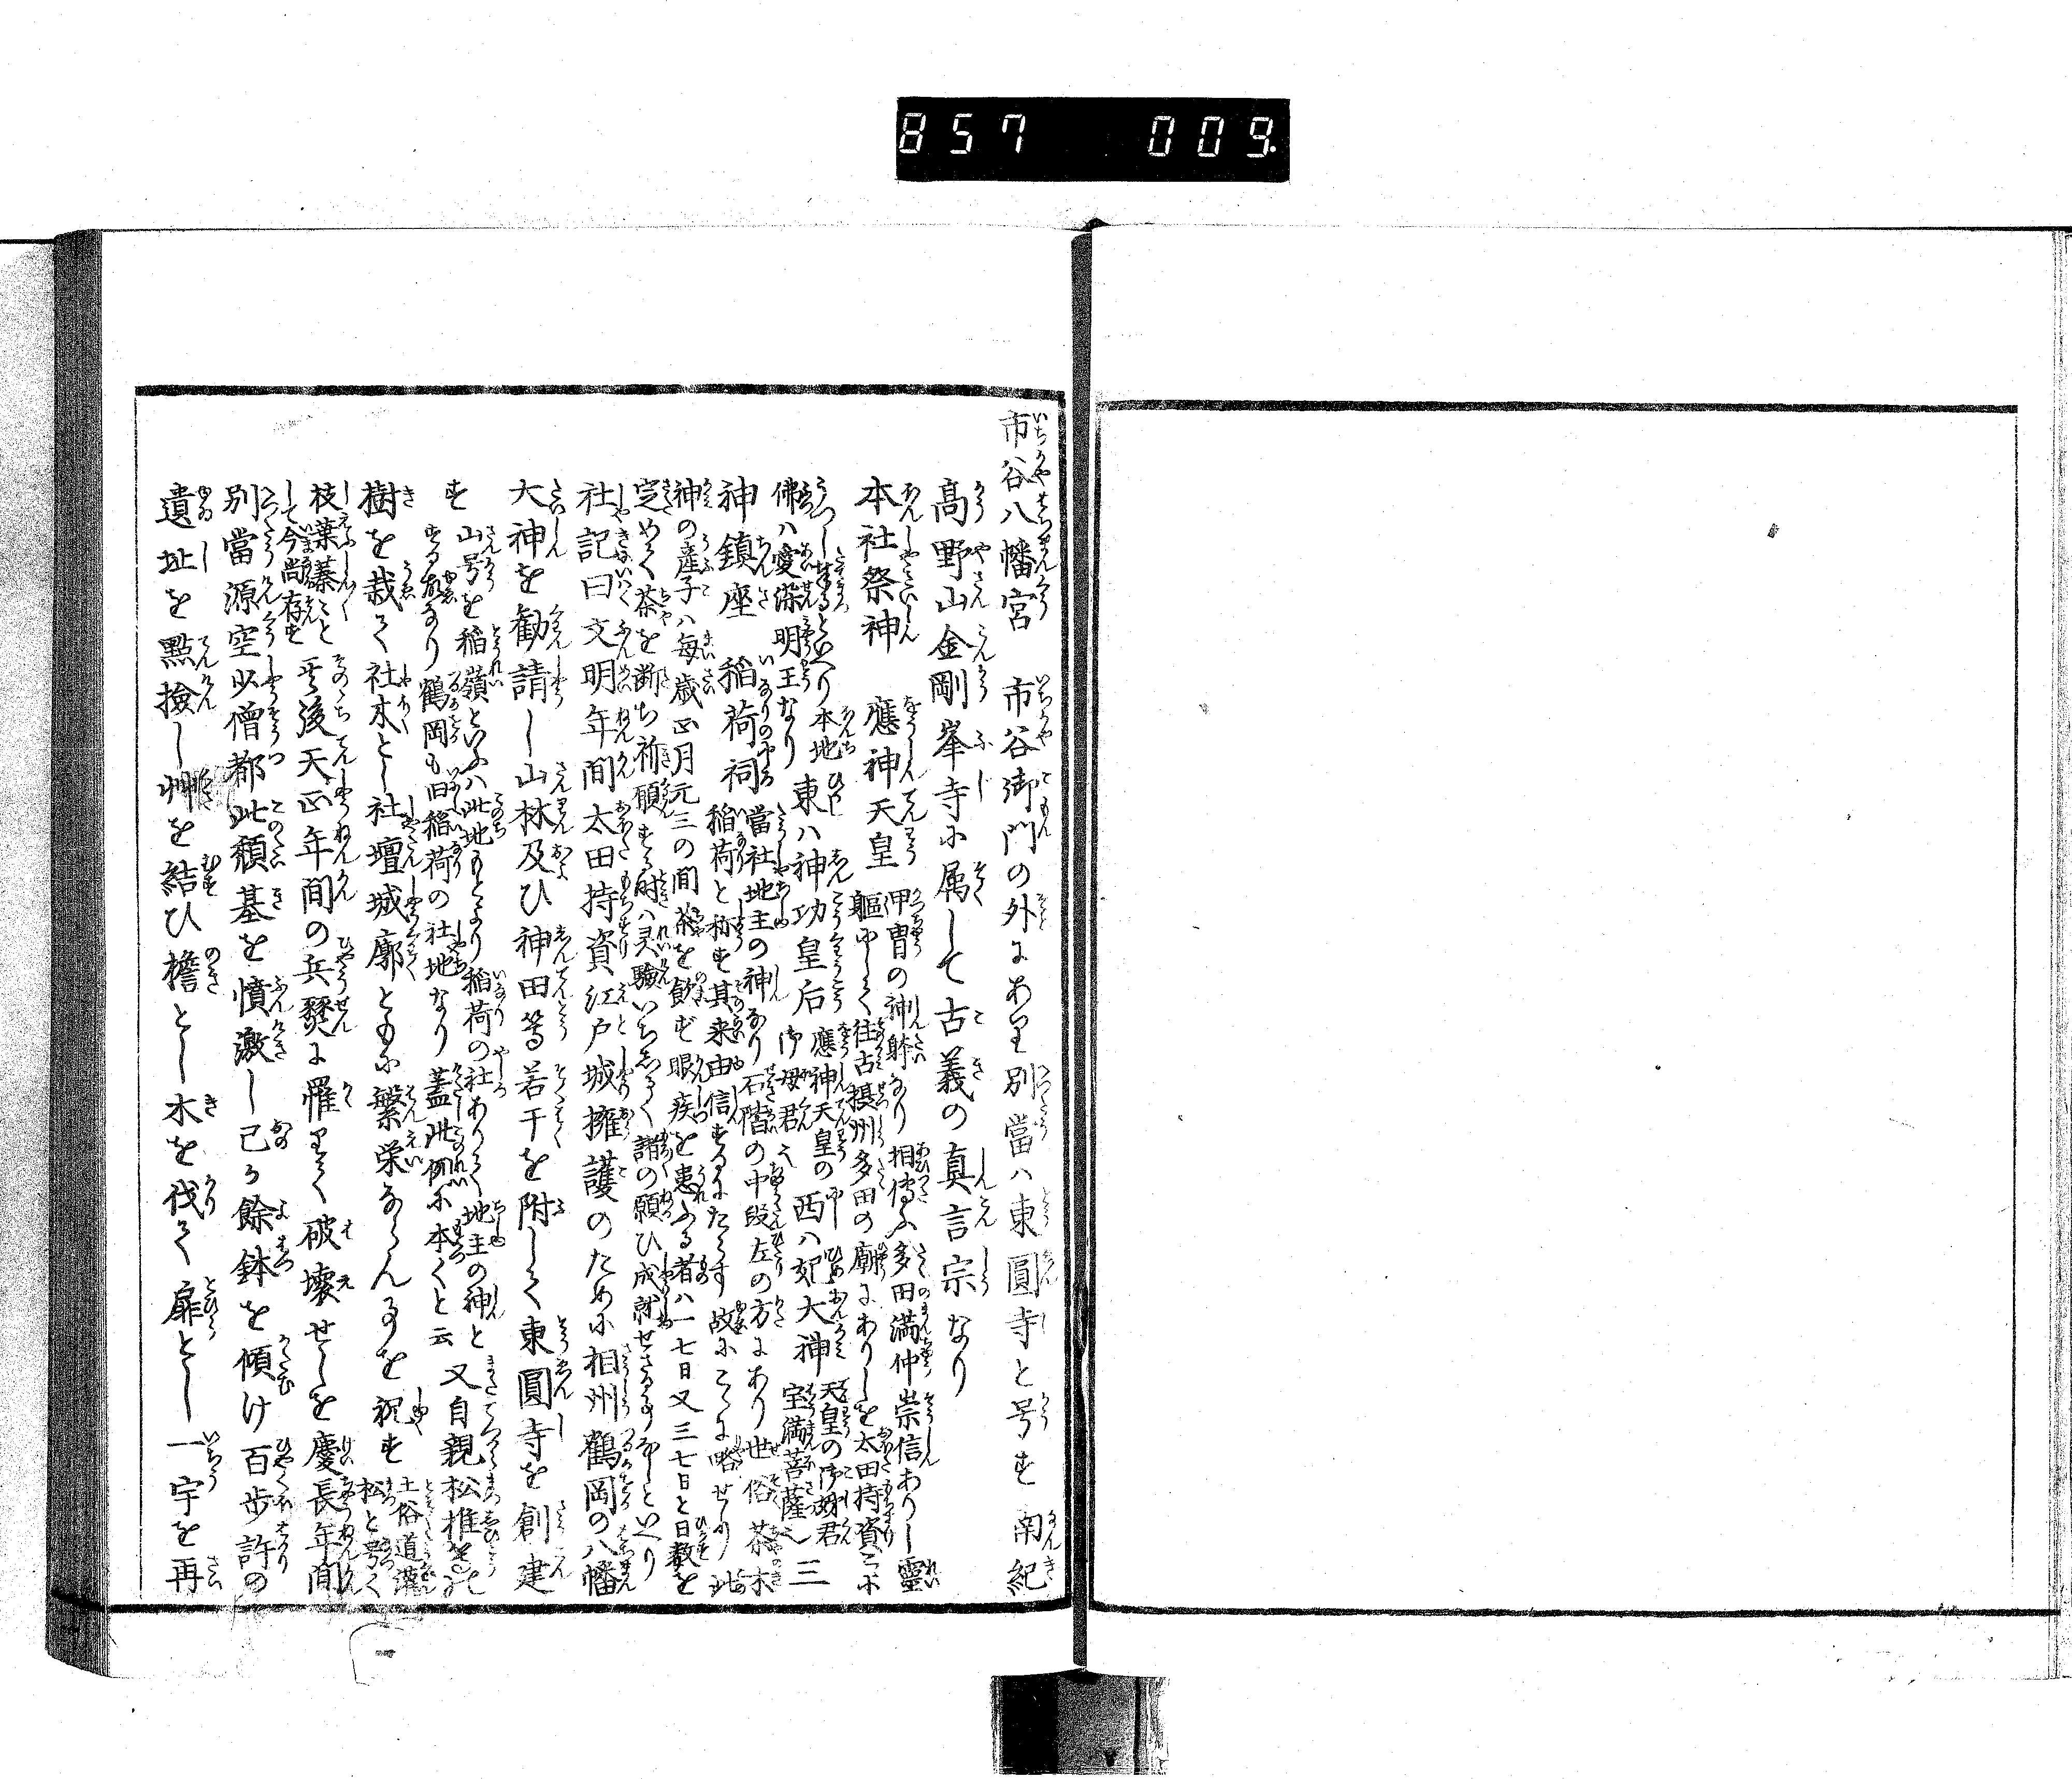 857 009.
市谷八幡宮 市谷御門の外にあり別當ハ東圓寺と号す南紀
高野山金剛峯寺に属して古義の真言宗なり
本社祭神 應神天皇 甲冑の神躰なり相傳ふ多田満仲崇信ありし靈
軀にして往古摂州多田の廟にありしを太田持資こゝに
うつし奉るといへり本地
佛ハ愛染明王なり 東ハ神功皇后 應神天皇の
御母君也 西ハ妃大神 天皇の御妣君
宝満菩薩也 三
神鎮座 稲荷祠 當社地主の神なり石階の中段左の方にあり世俗茶木
稲荷と称す其来由信するにたらす故にこゝに略せり此
神の産子ハ毎歳正月元三の間茶を飲ず眼疾を患ふる者ハ一七日又三七日と日数を
定めて茶を断ち祈願する時ハ灵驗いちしるく諸の願ひ成就せさる事なしといへり
社記曰文明年間太田持資江戸城擁護のために相州鶴岡の八幡
大神を勧請し山林及ひ神田等若干を附して東圓寺を創建
す 山号を稲嶺といふハ此地もとより稲荷の社ありて地主の神と
する故なり鶴岡も旧稲荷の社地なり蓋此例に本くと云 又自親松椎を
樹を栽て社木とし社壇城廓ともに繁栄ならん事を祝す 土俗道灌
松と号く
枝葉蓁々と
して今尚存す 其後天正年間の兵燹に罹りて破壊せしを慶長年間
別當源空少僧都此頽基を憤激し己か餘鉢を傾け百歩許の
遺址を點撿し艸を結ひ檐とし木を伐て扉とし一宇を再